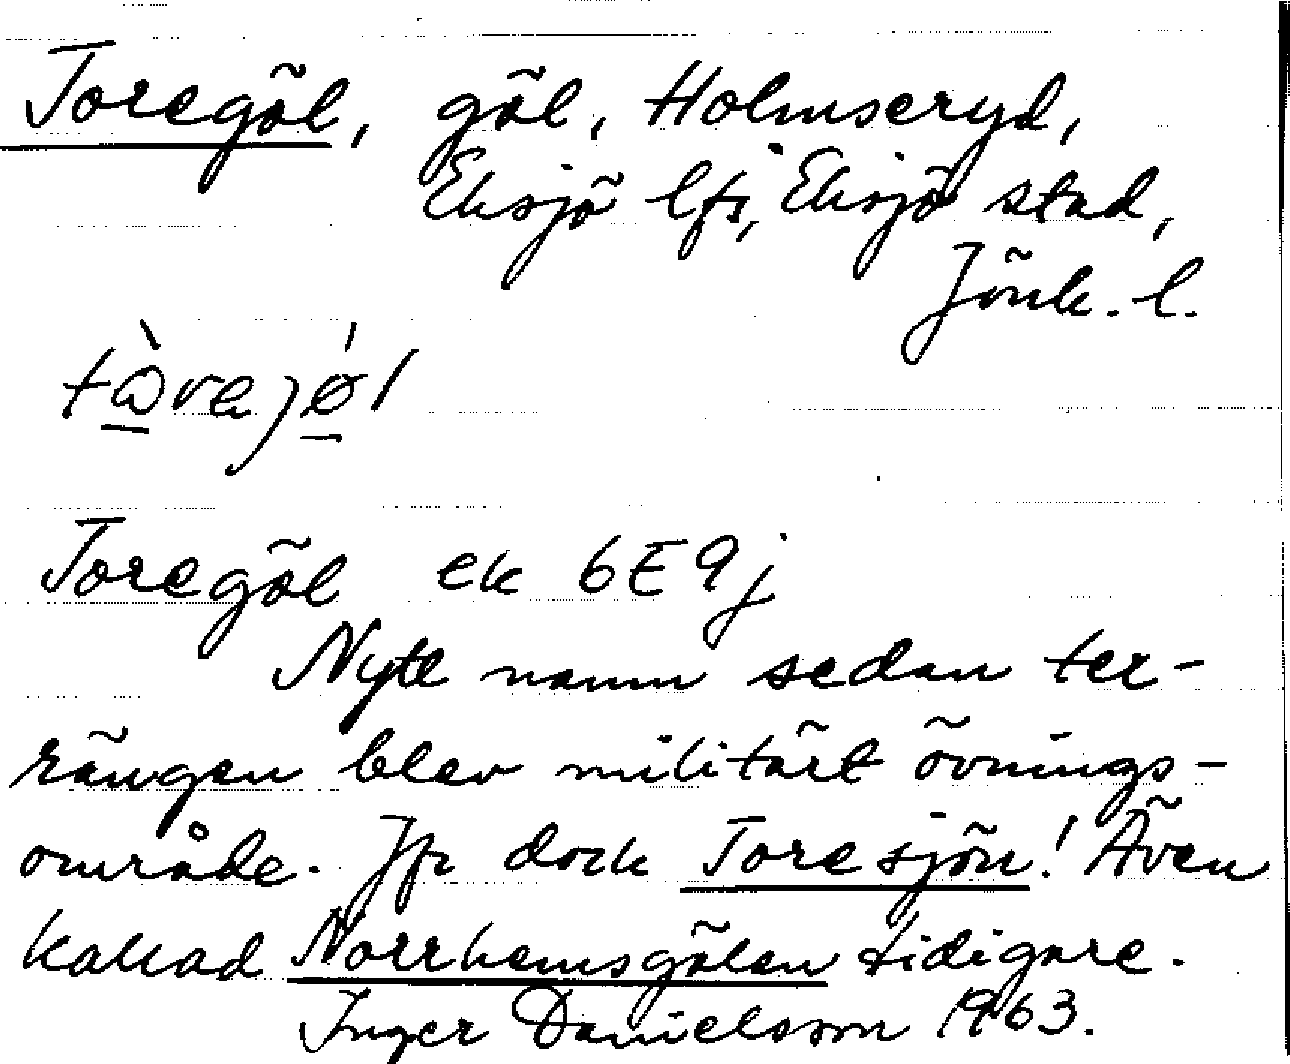 Toregöl, göl, Holmseryd,
Eksjö lfs, Eksjö stad,
Jönk. l.
Toregöl ek 6E9j
Nytt namn sedan ter-
rängen blev militärt övnings-
område. Jfr dock Toresjön! Även
kallad Norrhemsgölen tidigare.
Inger Danielsson 1963.